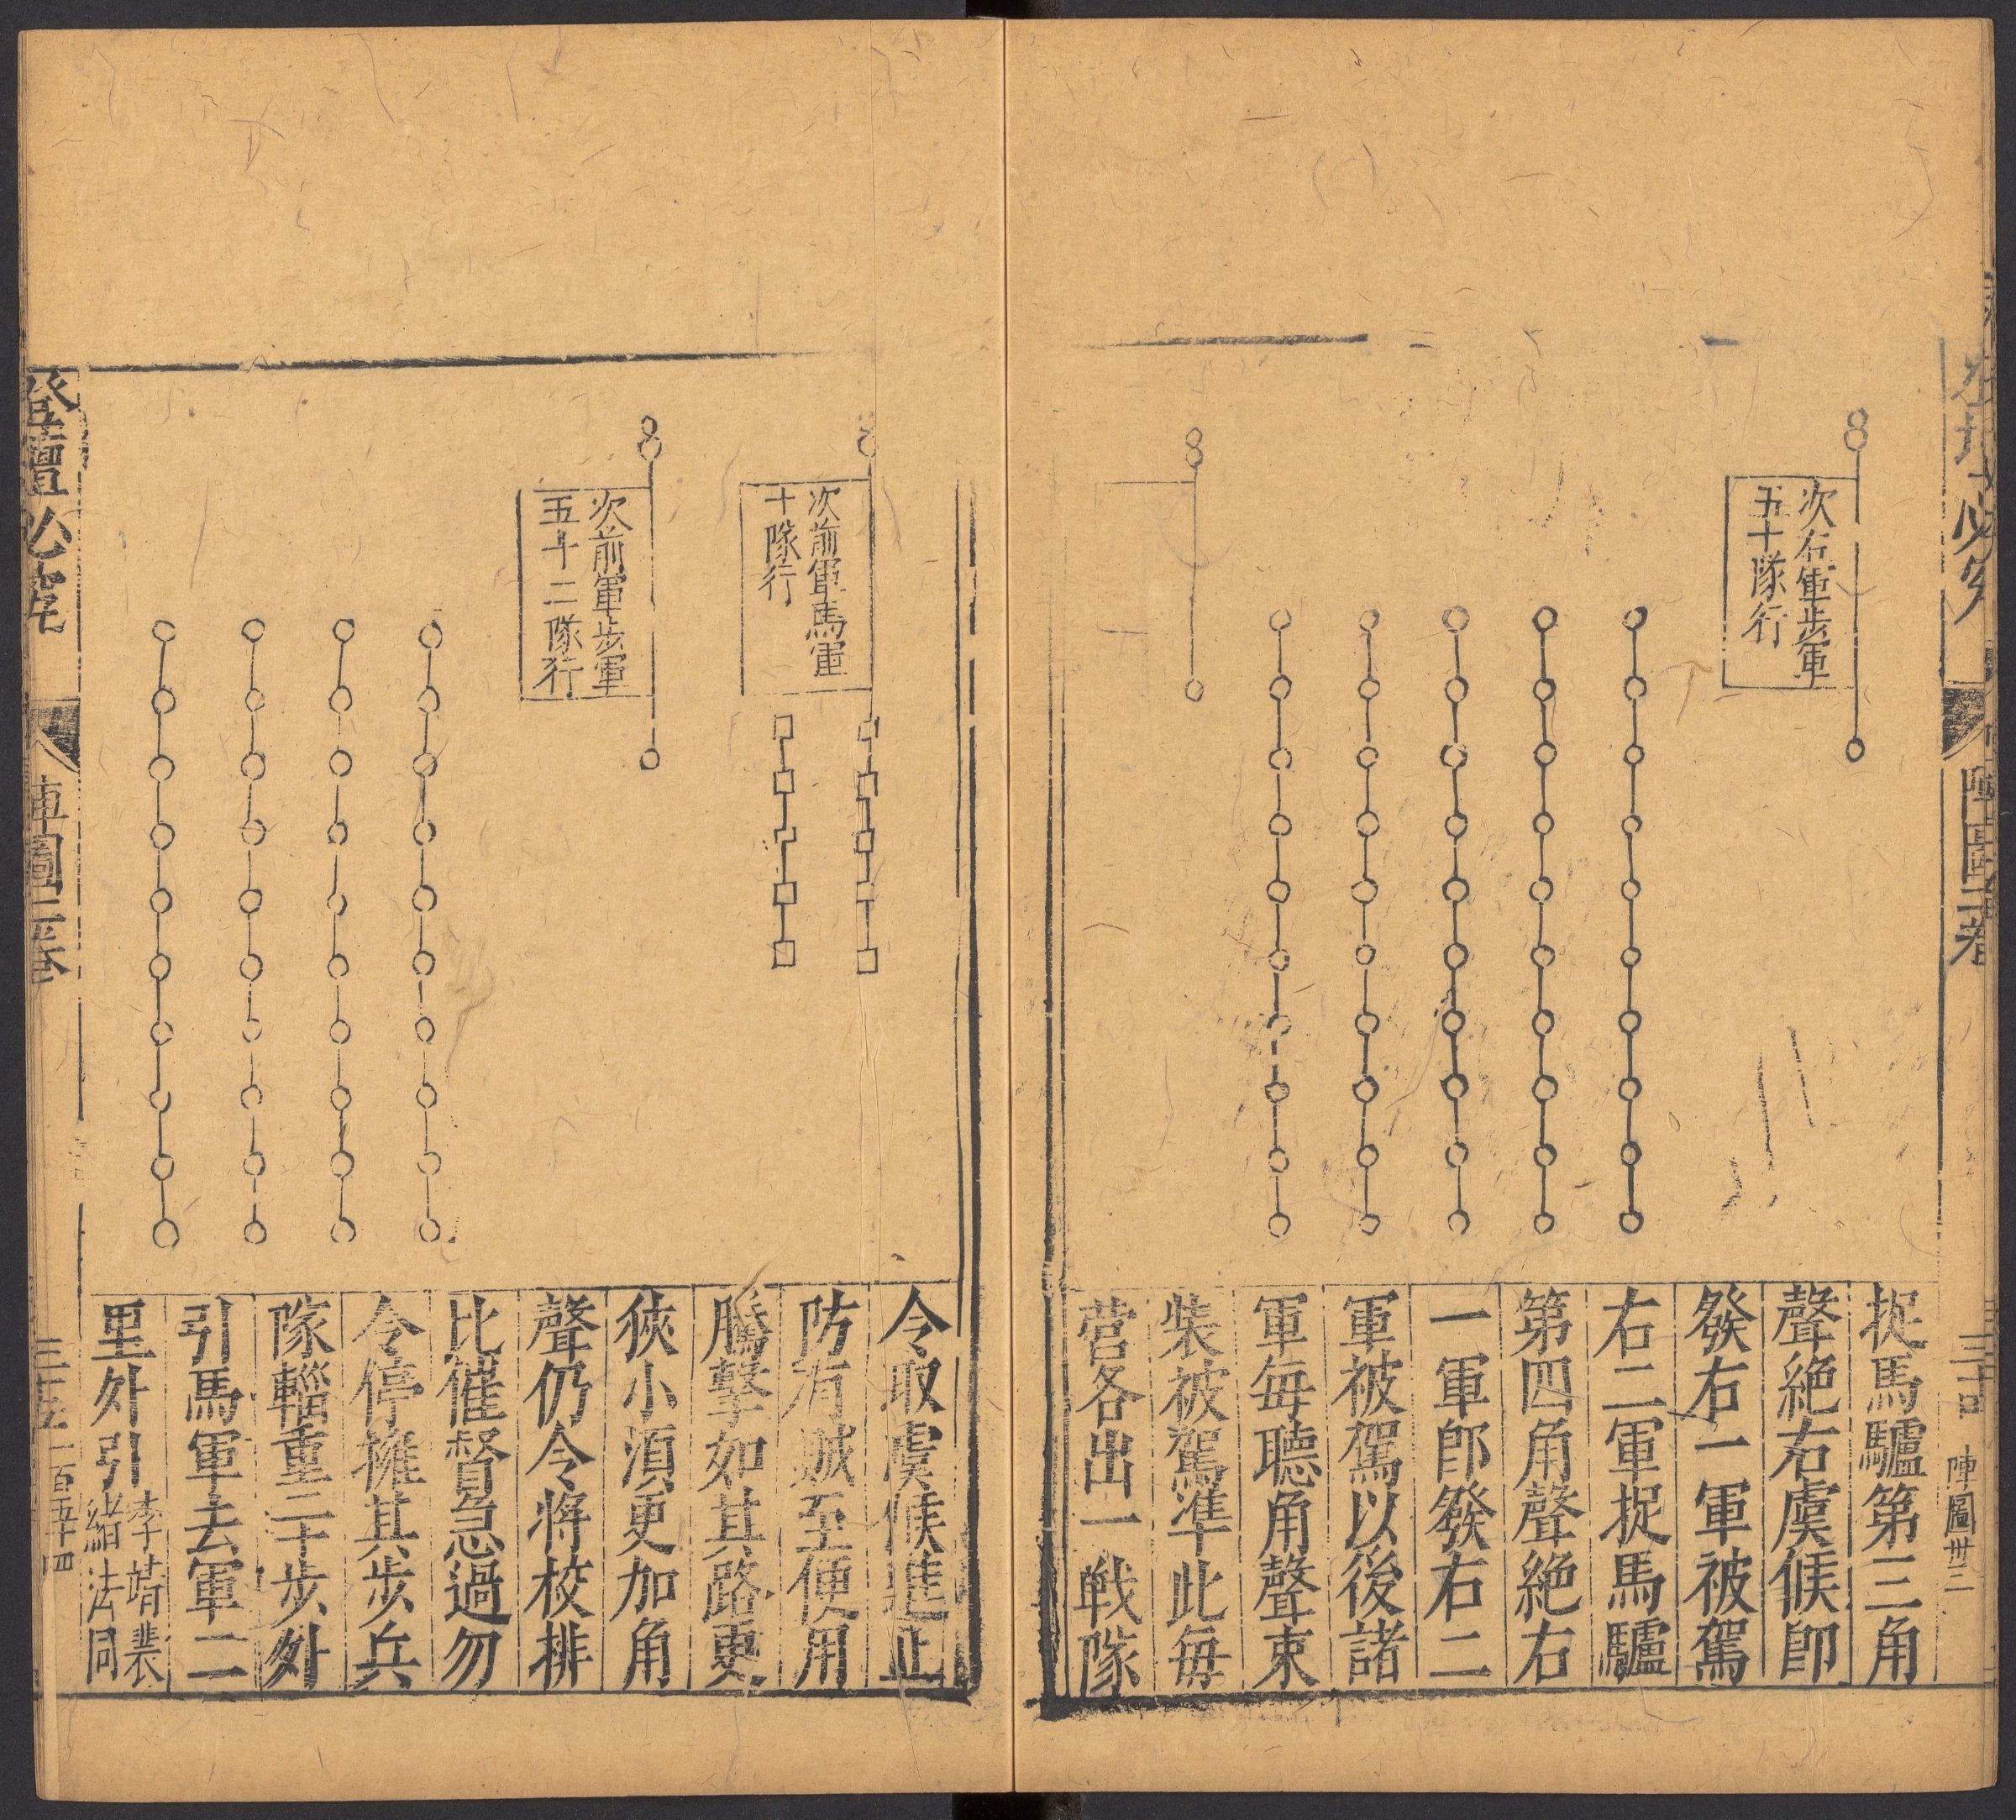 次右軍步軍
五十隊行
捉馬驢第三角
聲絕右虞候卽
發右一軍被駕
右二軍捉馬驢
第四角聲絕右
一軍卽發右二
軍被駕以後諸
軍每聽角聲束
裝被駕準此每
營各出一戰隊
陣圖卅三
次前軍馬軍
十隊行
次前軍步軍
五十二隊行
令取虞候進止
防有賊至便用
騰擊如其路更
狹小湏更加角
聲仍令將校排
比催督急過勿
令停擁其步兵
隊輜重二十步外
引馬軍去軍二
里外引
李靖裴
緒法同
登壇必究
三十五
一百五十四